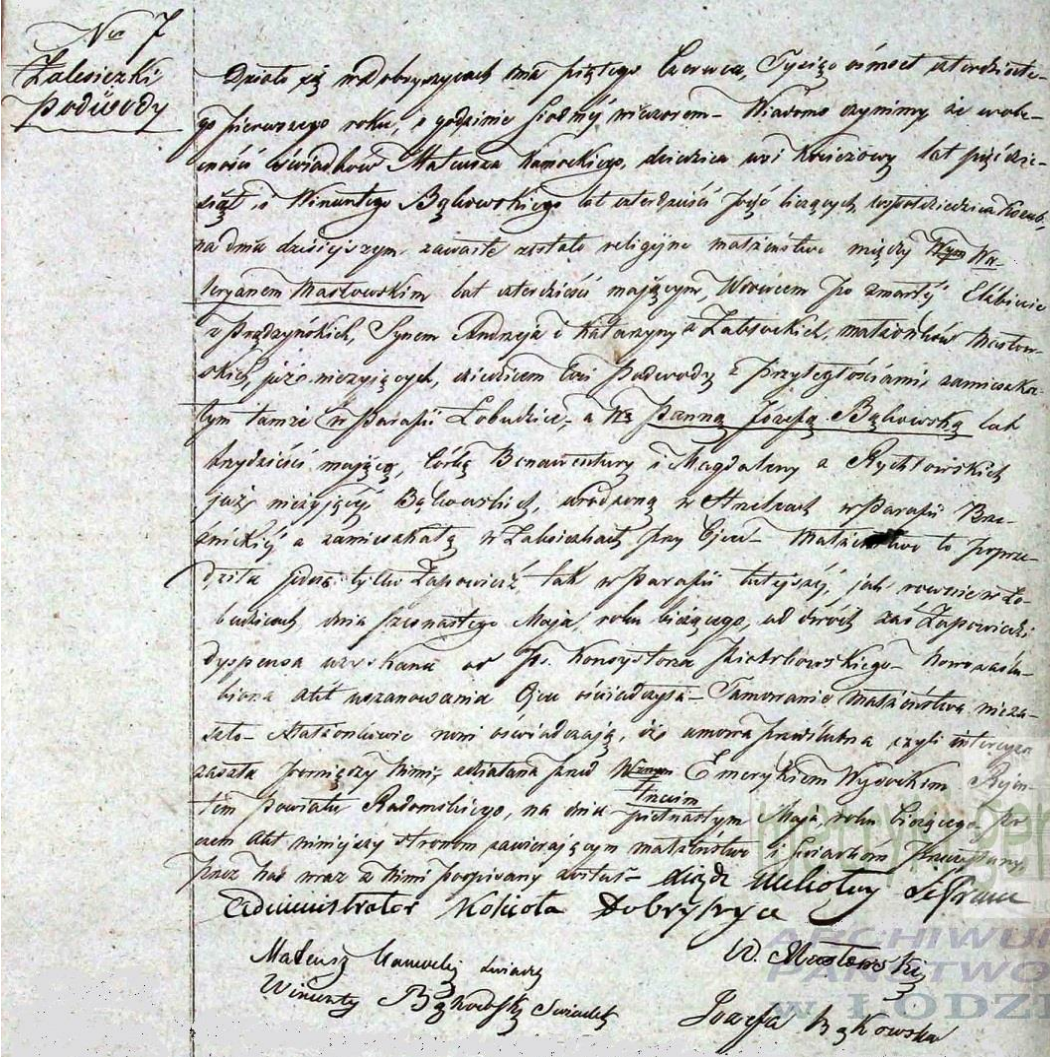 Nr 7
Zalesiczki
Podwody
Działo się w Dobryszycach dnia piątego Czerwca, Tysiąc ośmset czterdzieste-
go pierwszego roku, o godzinie siódméj wieczorem – Wiadomo czynimy że w obe-
cności świadków Mateusza dziedzica wsi lat pięćdzie-
siąt, i Wincentego Bąkowskiego lat czterdzieści pięć liczących,
na dniu dzisiejszym zawarte zostało religijne małżeństwo między Wym Wa-
leryanem Masłowskim lat czterdzieści mającym, Wdowcem po zmarłéj Elżbiecie
z Prądzyńskich, Synem Andrzeja i Katarzyny z małżonków Masłow-
skich, już nieżyjących, dziedzicem Wsi Podwody z Przyległościami zamieszka-
łym tamże w Parafii Łobudzice, a Panną Józefą Bąkowską lat
trzydzieści mającą, Córką Bonawentury i Magdaleny z Rychłowskich
już nieżyjącéj Bąkowskich, urodzoną w Strzelcach w Parafii Brze-
źnickiéj a zamieszkałą w Zalesiczkach przy Ojcu – Małżeństwo to poprze-
dziła jedna tylko Zapowiedź, tak w Parafii tutejszéj, jak równie w Ło-
budzicach dnia szesnastego Maja roku bieżącego, od dwóch zaś Zapowiedzi
dyspensa uzyskana od Konsystorza Piotrkowskiego – Nowozaślu-
biona akt uszanowania Ojcu oświadczyła – Tamowanie małżeństwa nieza-
szło – Małżonkowie nowi oświadczają, iż umowa przedślubna czyli intercyza
zaszła pomiędzy nimi, zdziałana przed Wznym Emerykiem Wysockim Rejen-
tem Powiatu Radomskiego, na dniu piętnastym Maja, roku bieżącego
Akt niniejszy stronom zawierającym małżeństwo i świadkom przeczytany,
przez nas wraz z nimi podpisany został – Xiądz
Administrator Kościoła Dobryszyce
Mateusz świadek
W. Masłowski
Wincenty Bąkowski Świadek
Józefa Bąkowska
ARCHIWUM
PAŃSTWO
w ŁODZI